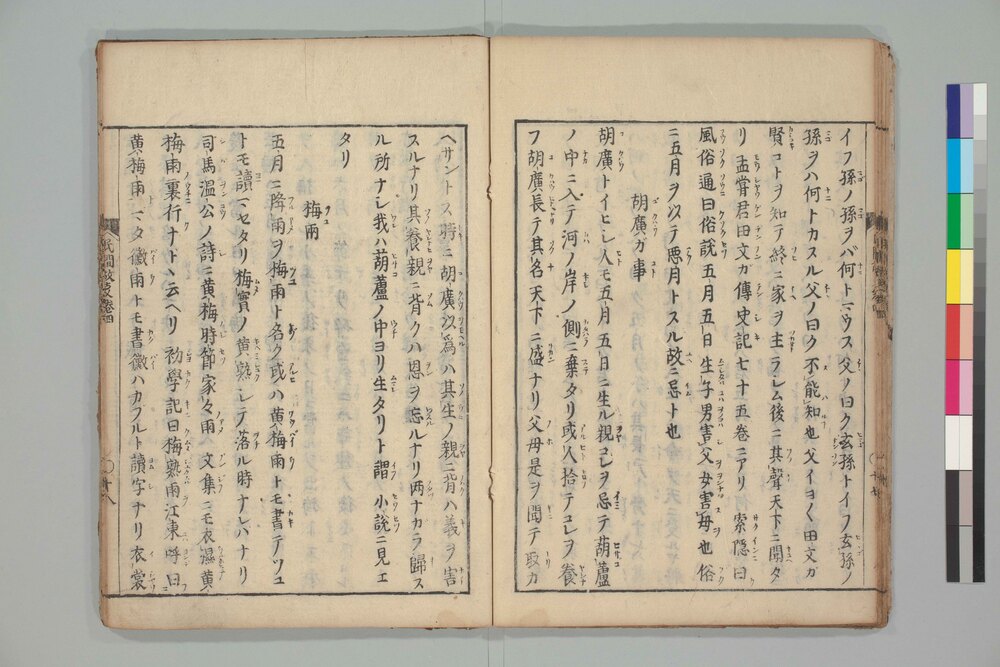 イフ孫ノ孫ヲバ何トニウス父ノ曰ク玄孫トイフ玄孫ノ
孫ヲハ何トカスル父ノ曰ク不能知也父イヨ〱田文ガ
賢コトヲ知テ終ニ家ヲ主ラシム後ニ其聲天下ニ聞タ
リ孟嘗君田文ガ傳史記七十五巻ニアリ索隱曰
風俗通曰俗説五月五日生子男害父女害母也俗
ニ五月ヲ以テ悪月トスル故ニ忌ト也
胡廣ガ事
胡廣トイヒシ人モ五月五日ニ生ル親コレヲ忌テ葫蘆
ノ中ニ入テ河ノ岸ノ側ニ棄タリ或人拾テコレヲ養
フ胡廣長テ其名天下ニ盛ナリ父母是ヲ聞テ取カ
ヘサントス時ニ胡廣以為ハ其生ノ親ニ背ハ義ヲ害
スルナリ其養親ニ背クハ恩ヲ忘ルナリ両ナカラ歸ス
ル所ナシ我ハ葫蘆ノ中ヨリ生タリト謂 小説ニ見エ
タリ
梅雨
五月ニ降雨ヲ梅雨ト名ク或ハ黄梅雨トモ書テツユ
トモ讀ニセタリ梅實ノ黄熟シテ落ル時ナレハナリ
司馬温公ノ詩ニ黄梅時節家々雨 文集ニモ衣濕黄
梅雨裏行ナトヽ云ヘリ 初學記曰梅熟雨江東呼曰
黄梅雨ニタ黴雨トモ書黴ハカブルト讀字ナリ衣裳
民間歳時巻四